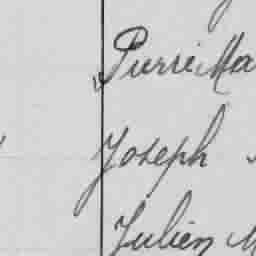 Pierre Ma
Joseph
Julien M